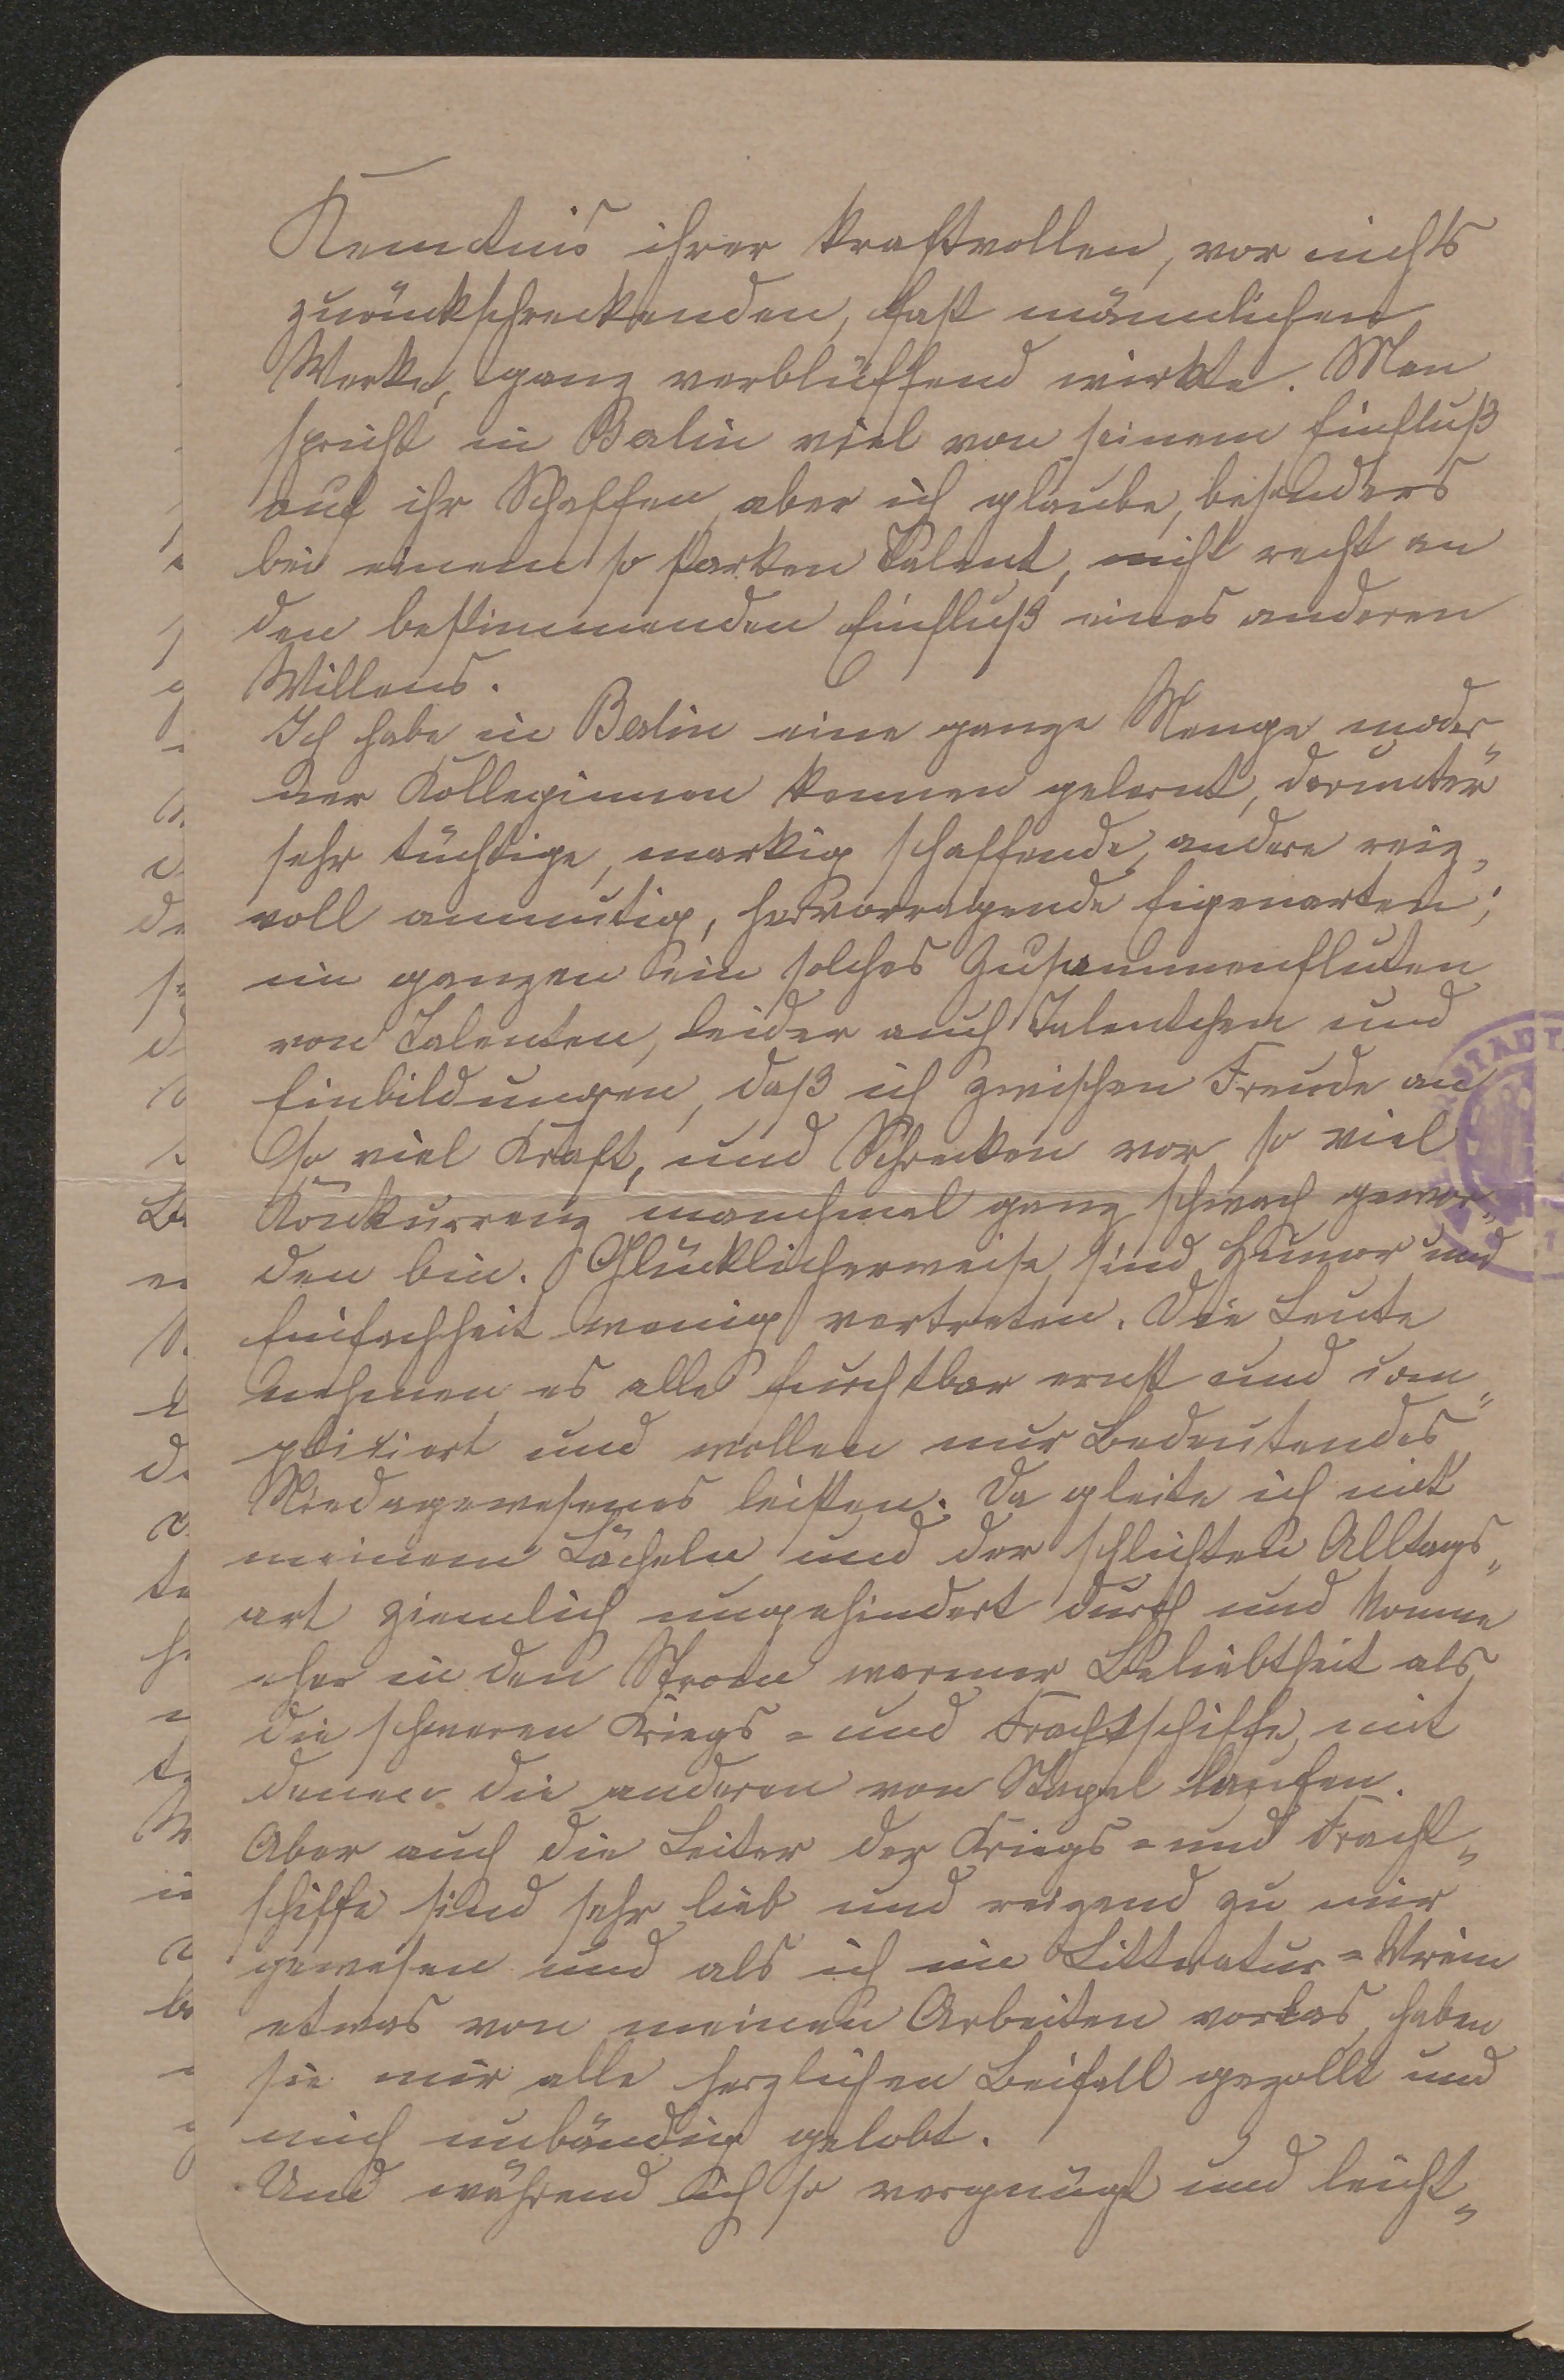 Kenntnis ihrer kraftvollen, vor nichts
zurückschreckenden, fast männlichen
Werke, ganz verblüffend wirkte. Man
spricht in Berlin viel von seinem Einfluß
auf ihr Schaffen, aber ich glaube, besonders
bei einem so starken Talent, nicht recht an
den bestimmenden Einfluß eines anderen
Willens.
Ich habe in Berlin eine ganze Menge moder-
ner Kolleginnen kennen gelernt, darunter
sehr tüchtige, markig schaffende, andere reiz-
voll anmutig, hervorragende Eigenarten;
im ganzen ein solches Zusammenfluten
von Talenten, leider auch Talentchen und
Einbildungen, daß ich zwischen Freude an
so viel Kraft, und Schrecken vor so viel
Konkurrenz manchmal ganz schwach gewor-
den bin. Glücklicherweise sind Humor und
Einfachheit wenig vertreten. Die Leute
nehmen es alle furchtbar ernst und com-
pliciert und wollen nur Bedeutendes
Niedagewesenes leisten. Da gleite ich mit
meinem Lächeln und der schlichten Alltags-
art ziemlich ungehindert durch und komme
eher in den Strom warmer Beliebtheit als
die schweren Kriegs- und Frachtschiffe, mit
denen die anderen von Stapel laufen.
Aber auch die Leiter der Kriegs- und Fracht-
schiffe sind sehr lieb und reizend zu mir
gewesen und als ich im Litteratur-Verein
etwas von meinen Arbeiten vorlas, haben
sie mir alle herzlichen Beifall gezollt und
mich unbändig gelobt.
Und während ich so vergnügt und leicht-